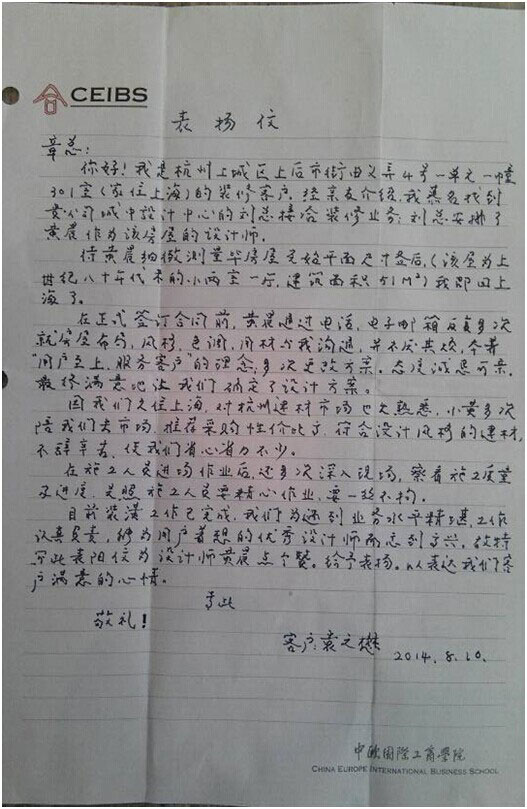 CEIBS
表扬信
章总:
你好!我是杭州上城区上后市街由义弄4号一单元一幢
301室(家住上海)的装修客户,经亲友介绍,我慕名找到
贵公司城中设计中心的刘总接洽装修业务,刘总安排了
黄晨作为该房屋的设计师。
待黄晨细微测量毕房屋原始平面尺寸签后,(该屋为上
世纪八十年代末的小两室一厅,建筑面积51M²)我即回上
海了。
在正式签订合同前,黄晨通过电话,电子邮箱反复多次
就房屋布局,风格,色调,用材与我沟通,并不厌其烦,本着
"用户至上,服务客户"的理念,多次更改方案。态度诚恳可亲,
最终满意地让我们确定了设计方案。
因我们久住上海,对杭州建材市场也欠熟悉,小黄多次
陪我们去市场,推荐采购性价比高,符合设计风格的建材,
不辞辛苦,使我们省心省力不少。
在施工人员进场作业后,还多次深入现场,察看施工质量
及进度,关照施工人员要精心作业,要一丝不拘。
目前装潢工作已完成,我们为遇到业务水平精湛,工作
认真负责,能为用户着想的优秀设计师而感到高兴,故特
写此表阳信为设计师黄晨点个赞。给予表扬。以表达我们客
户满意的心情。
专此
敬礼!
客户:袁之懋
2014.8.10.
中欧国际工商学院
CHINA EUROPE INTERNATIONAL BUSINESS SCHOOL